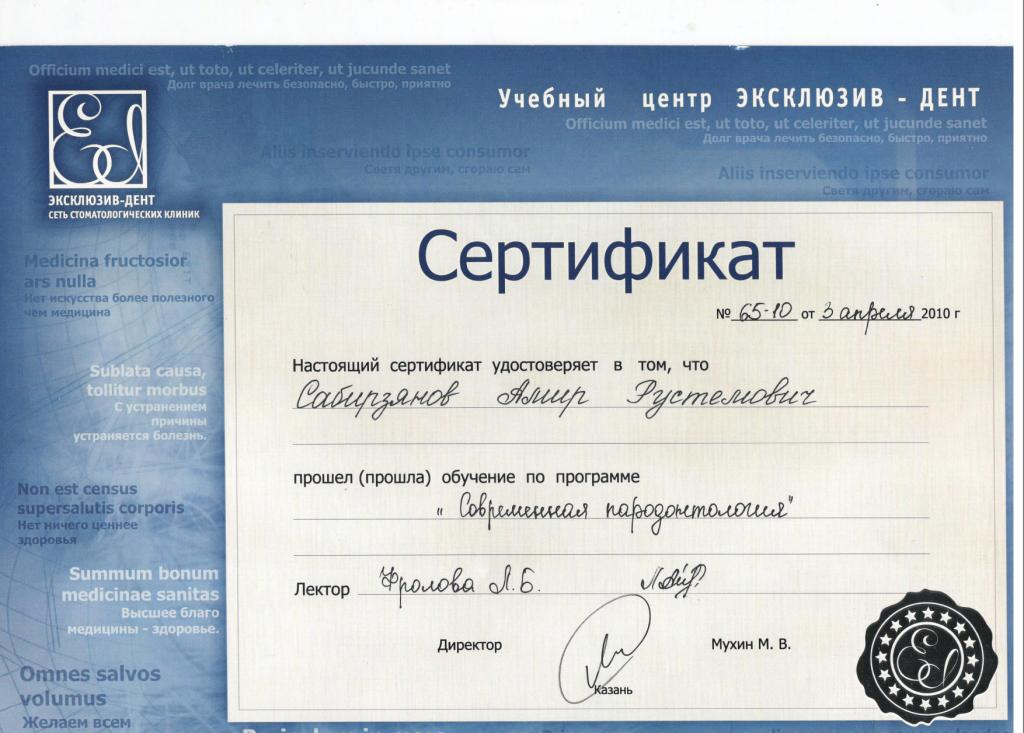 Officium medici est, ut toto, ut celeriter, ut jucunde sanet
Долг врача лечить безопасно, быстро, приятно
Учебный центр ЭКСКЛЮЗИВ - ДЕНТ
Officium medici est, ut toto, ut celeriter, ut jucunde sanet
Долг врача лечить безопасно, быстро, приятно
Aliis inserviendo ipse consumor
Светя другим, сгораю сам
Aliis inserviendo ipse consumor
Светя другим, сгораю сам
Ed
ЭКСКЛЮЗИВ-ДЕНТ
СЕТЬ СТОМАТОЛОГИЧЕСКИХ КЛИНИК
Medicina fructosior
ars nulla
Нет искусства более полезного
чем медицина
Sublata causa,
tollitur morbus
С устранением
причины
устраняется болезнь.
Non est census
supersalutis corporis
Нет ничего ценнее
здоровья
Summum bonum
medicinae sanitas
Высшее благо
медицины - здоровье.
Omnes salvos
volumus
Желаем всем
Сертификат
№ 65-10 от 3 апреля 2010 г
Настоящий сертификат удостоверяет в том, что
Сабирзянов Амир Рустемович
прошел (прошла) обучение по программе
"Современная пародонтология"
Лектор Фролова Л.Б.
Директор Мухин М. В.
Казань
Ed